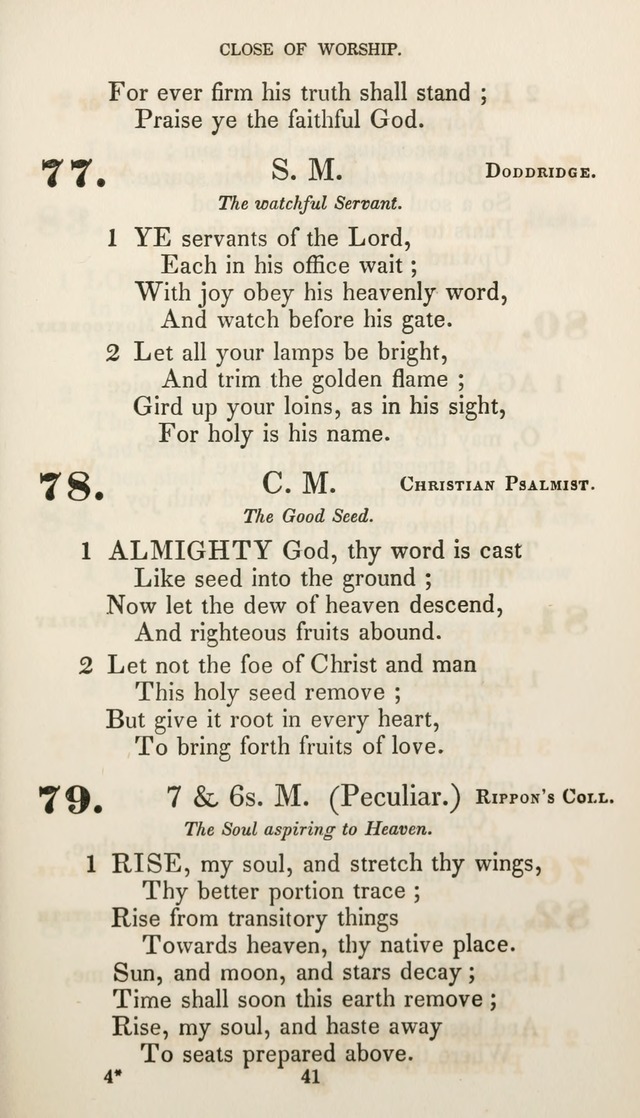 CLOSE OF WORSHIP.
For ever firm his truth shall stand ;
Praise ye the faithful God.
77. S. M. DODDRIDGE.
The watchful Servant.
1 YE servants of the Lord,
Each in his office wait ;
With joy obey his heavenly word,
And watch before his gate.
2 Let all your lamps be bright,
And trim the golden flame ;
Gird up your loins, as in his sight,
For holy is his name.
78. C. M. CHRISTIAN PSALMIST.
The Good Seed.
1 ALMIGHTY God, thy word is cast
Like seed into the ground ;
Now let the dew of heaven descend,
And righteous fruits abound.
2 Let not the foe of Christ and man
This holy seed remove ;
But give it root in every heart,
To bring forth fruits of love.
79. 7 & 6s. M. (Peculiar.) RIPPON'S COLL.
The Soul aspiring to Heaven.
1 RISE, my soul, and stretch thy wings,
Thy better portion trace ;
Rise from transitory things
Towards heaven, thy native place.
Sun, and moon, and stars decay ;
Time shall soon this earth remove ;
Rise, my soul, and haste away
To seats prepared above.
4* 41